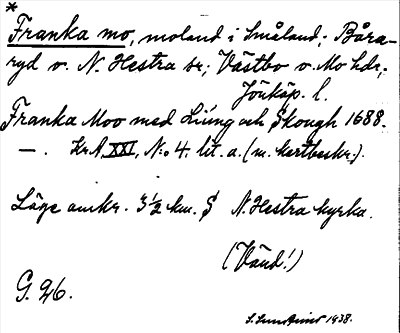 *
Franka mo, moland i Småland; Båra-
ryd o. N. Hestra sr; Västbo o. Mo hdr;
Jönköp. l.
Franka Moo med Liüng och Skough 1688.
—. Kr.A. XXI, N:o 4. lit. a. (m. kartbeskr.).
Läge omkr. 3 1/2 km. S N. Hestra kyrka.
(Vänd!)
G. 26.
1938.